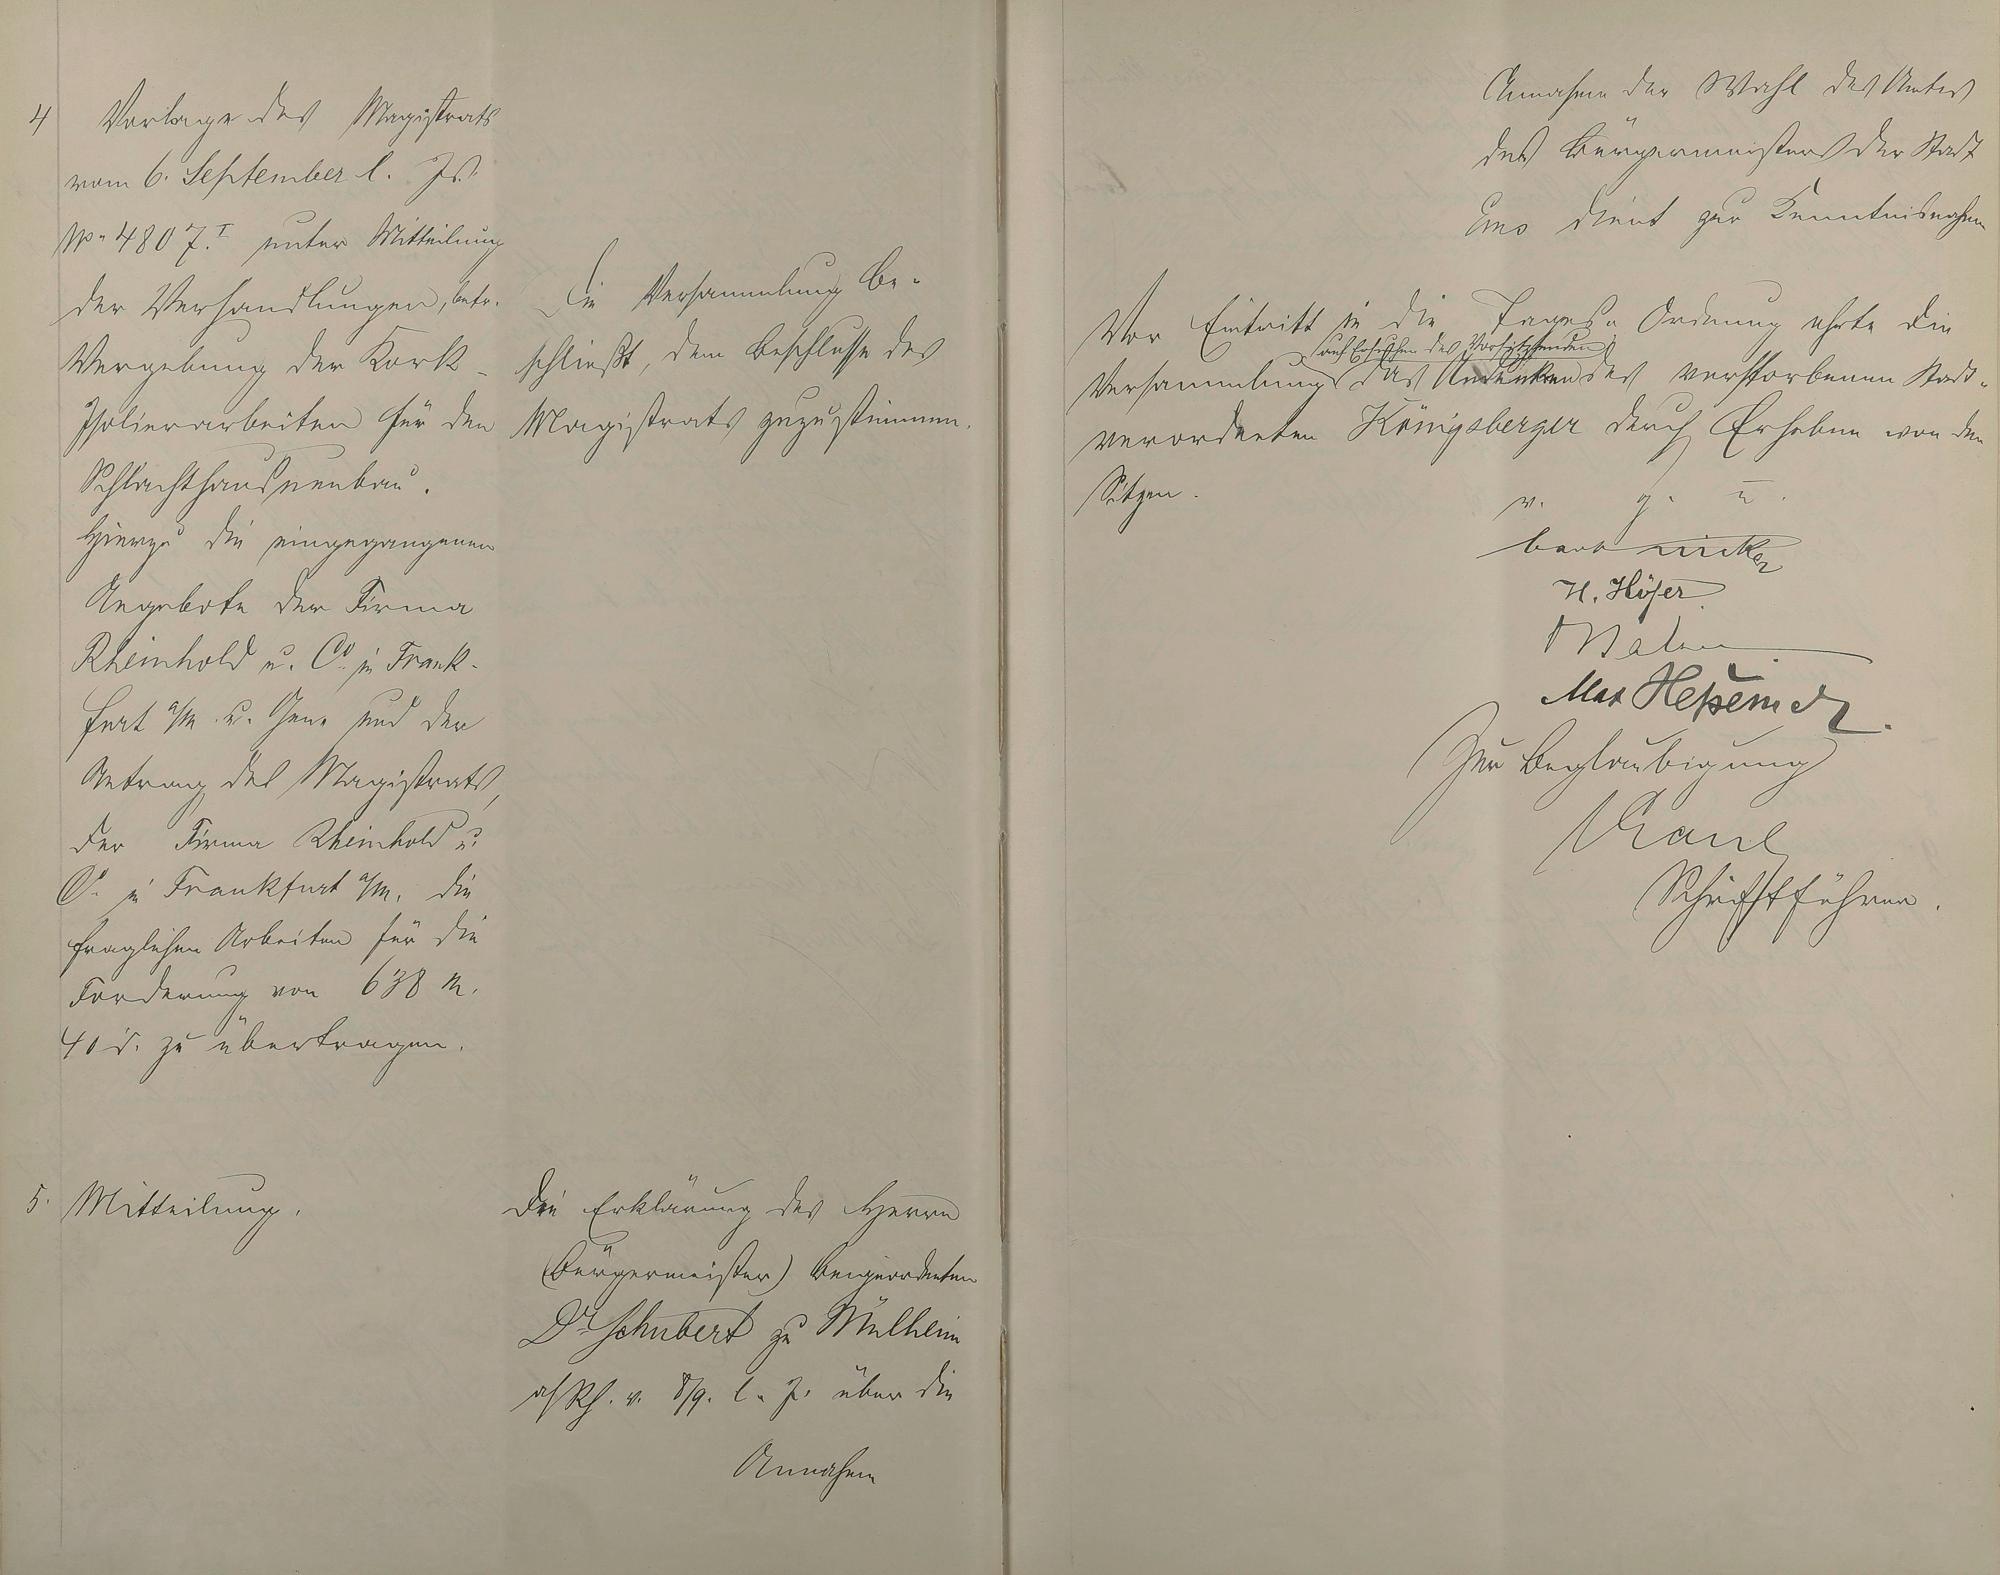 4 Vorlage des Magistrats
vom 6. September l. Js.
No 4807.I unter Mitteilung
der Verhandlungen, betr.
Vergebung der Kork-
Isolierarbeiten für den
Schlachthausneubau.
Hierzu die eingegangenen
Angebote der Firma
Rheinhold u. Co. in Frank-
furt a/M. u. Gen. und der
Antrag des Magistrats,
der Firma Rheinhold u.
Co. in Frankfurt a/M. die
fraglichen Arbeiten für die
Forderung von 638 M.
40 d. zu übertragen.
Die Versammlung be-
schließt, dem Beschlusse des
Magistrats zuzustimmen.
5. Mitteilung.
Die Erklärung des Herrn
(Bürgermeister) Beigeordneten
Dr Schubert zu Mülheim
a/Rh. v. 8/9. l. J. über die
Annahme
Annahme der Wahl des Amtes
des Bürgermeisters der Stadt
Ems dient zur Kenntnisnahme
Vor Eintritt in die Tages-Ordnung ehrte die
auf Ersuchen des Vorsitzenden
Versammlung das Andenken des verstorbenen Stadt-
verordneten Königsberger durch Erheben von den
Sitzen.
v. g. u.
H. Höfer
Max Heßemer
Zur Beglaubigung
Kaul
Schriftführer.